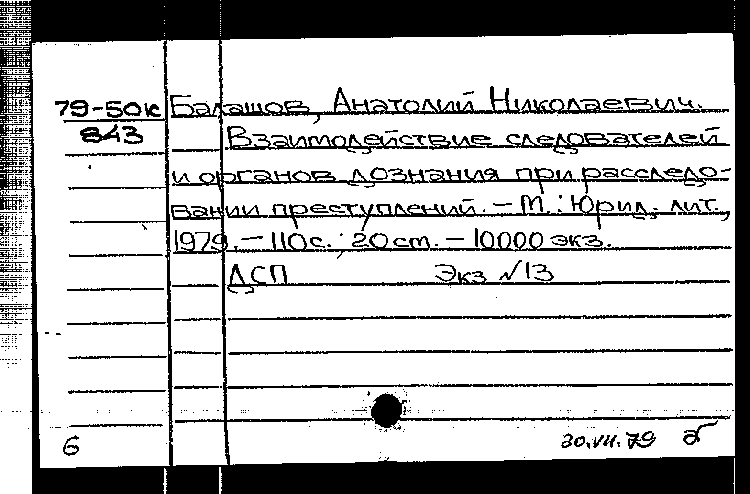 79-50к Балашов, Анатолий Николаевич.
843 Взаимодействие следователей
и органов дознания при расследо-
вании преступлений. - М.: Юрид. лит.,
1979. - 110с.; 20cm. - 10000 экз.
ДСП Экз №13
6 30.VII.79